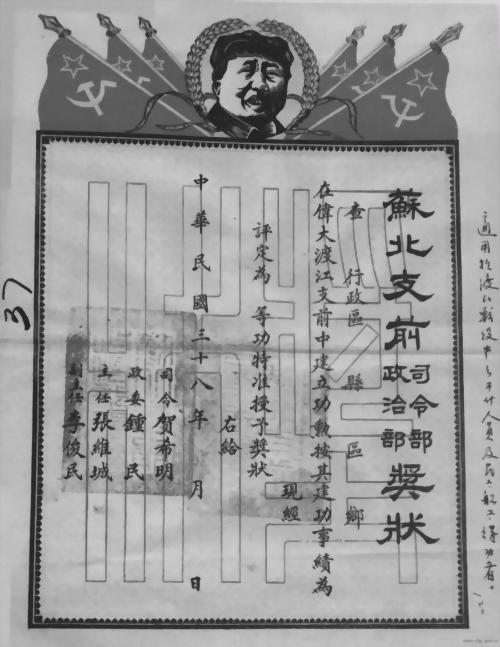 適用於渡江戰役中
人員及民工船工得功者。
蘇北支前司令部政治部獎狀
查 行政區 縣 區 鄉
在偉大渡江支前中建立功勳按其建功事績為
現經
評定為 等功特准授予獎狀
右給
中華民國三十八年 月 日
司令賀希明
政委鍾民
主任張維城
副主任李俊民
37